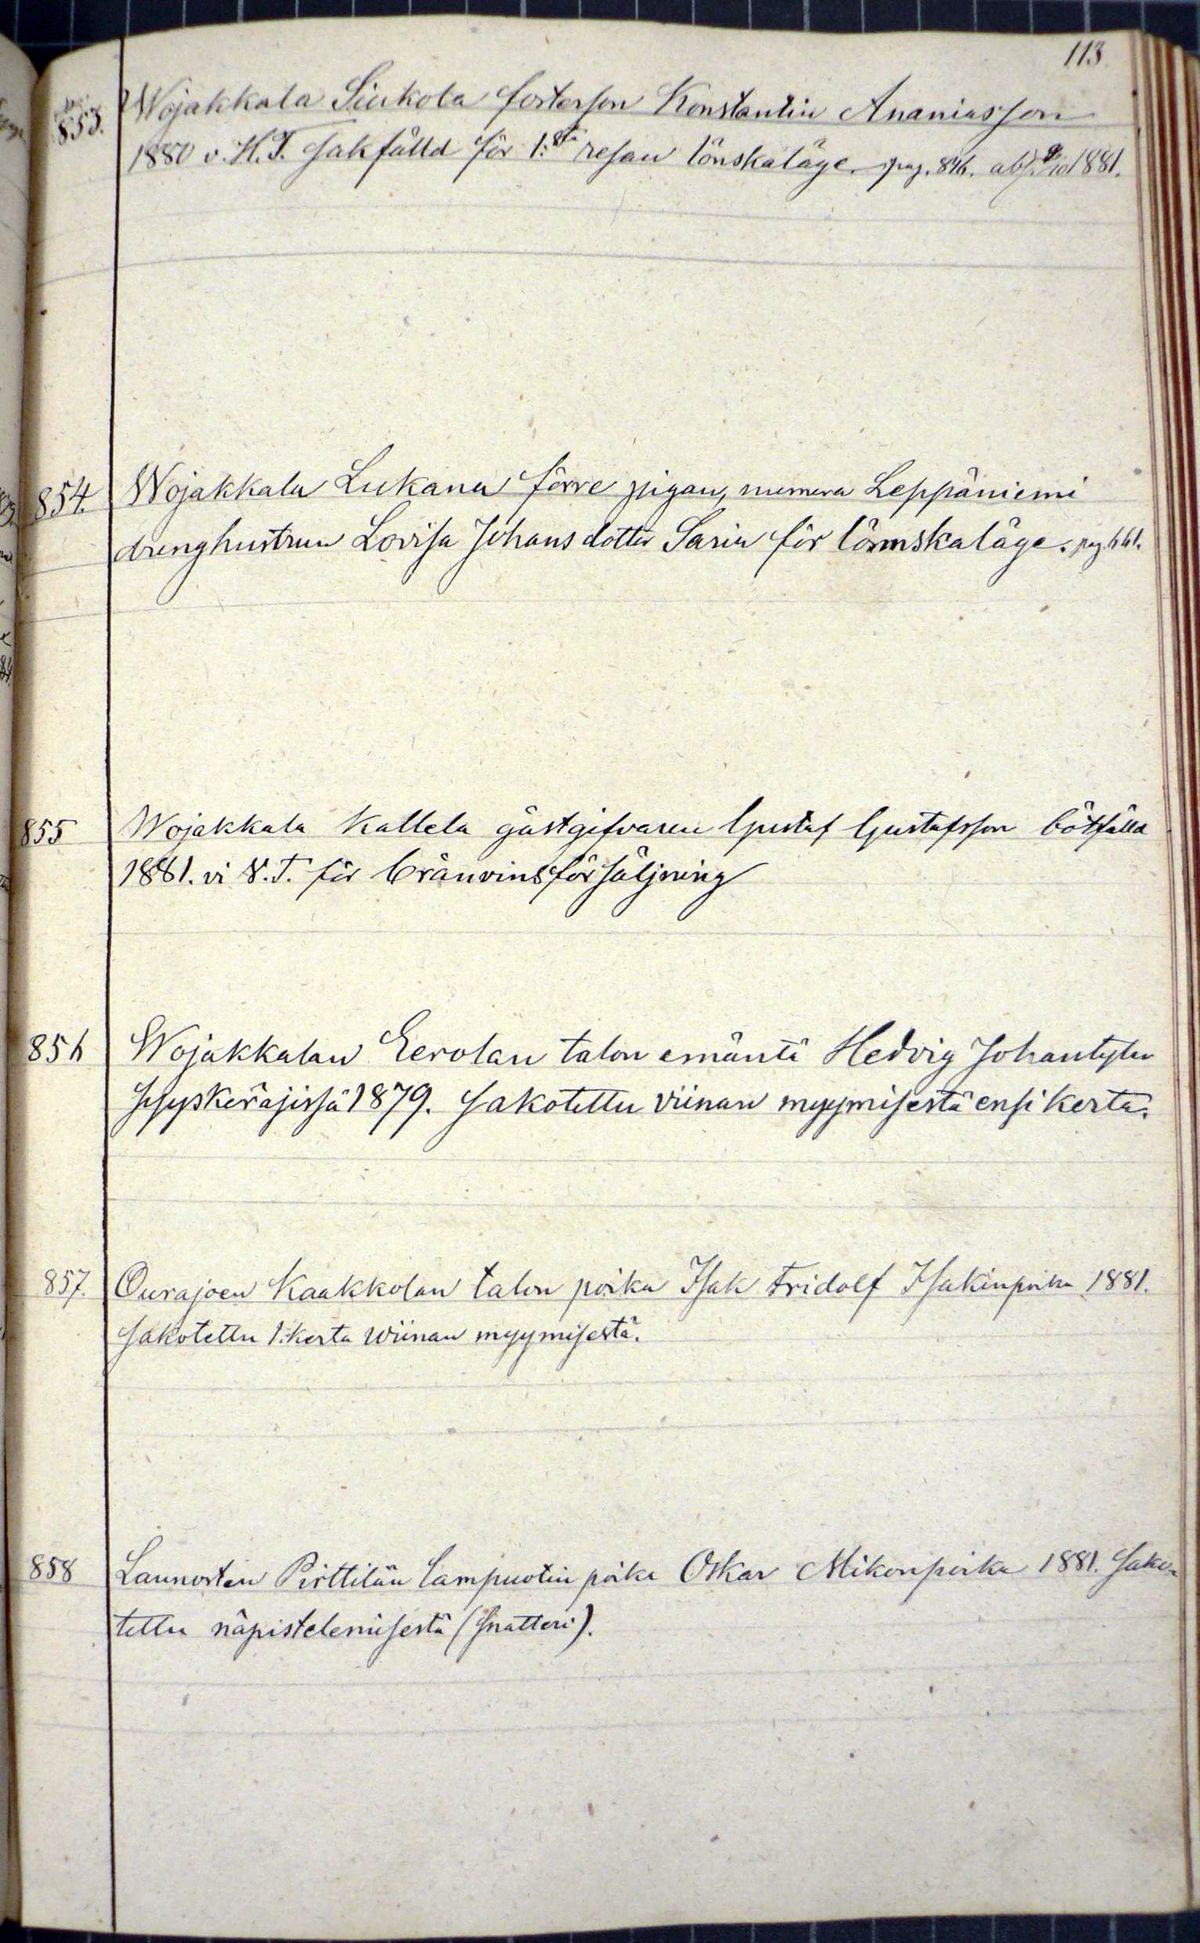 113
853. Wojakkala Siukola fosterson Konstantin Ananiasson
1880 v. H.T. sakfälld för 1:sta resan lönskaläge. pag. 846. abs. 9/10 1881.
854. Wojakkala Lukana förre pigan, numera Leppäniemi
drenghustrun Lovisa Johansdotter Saxin för lönnskaläge. pag 661.
855 Wojakkala Kallela gästgifvaren Gustaf Gustafsson bötfälld
1881. vi V.T. för bränvinsförsäljning
856 Wojakkalan Eerolan talon emäntä Hedvig Johantytär
Syyskäräjissä 1879. sakotettu viinan myymisestä ensi kerta.
857. Ourajoen Kaakkolan talon poika Isak Fridolf Isakinpoika 1881.
sakotettu 1. kerta wiinan myymisestä.
858 Launosten Pirttilän lampuotin poika Oskar Mikonpoika 1881. sako-
tettu näpistelemisestä (snatteri).